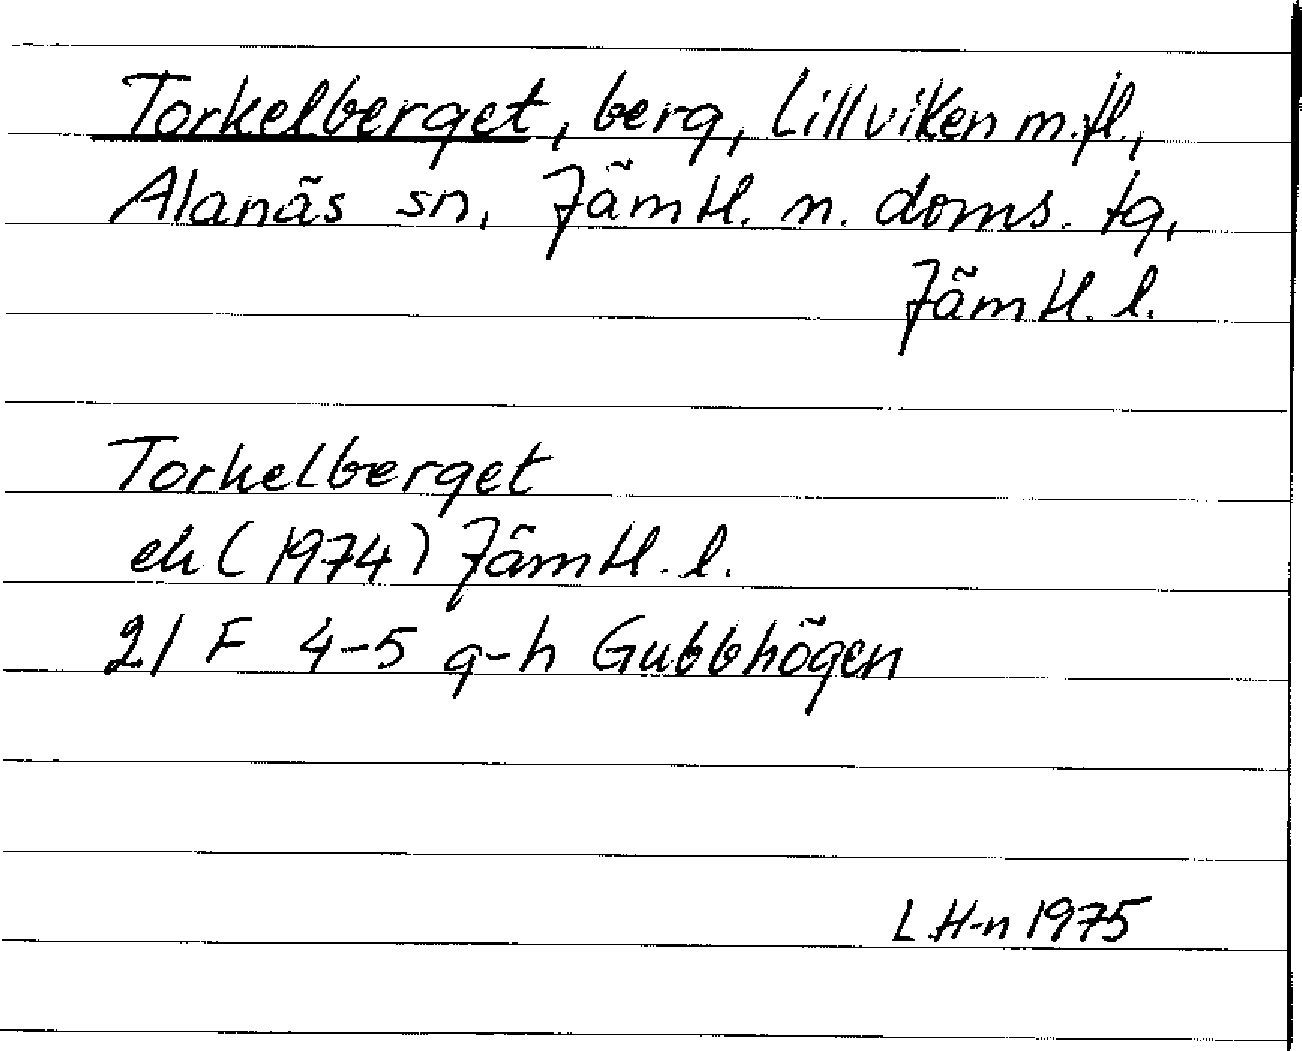 Torkelberget, berg, Lillviken m.fl.,
Alanäs sn, Jämtl. n. doms. tg,
Jämtl. l.
Torkelberget
ek (1974) Jämtl. l.
21 F 4-5 g-h Gubbhögen
L.H-n 1975